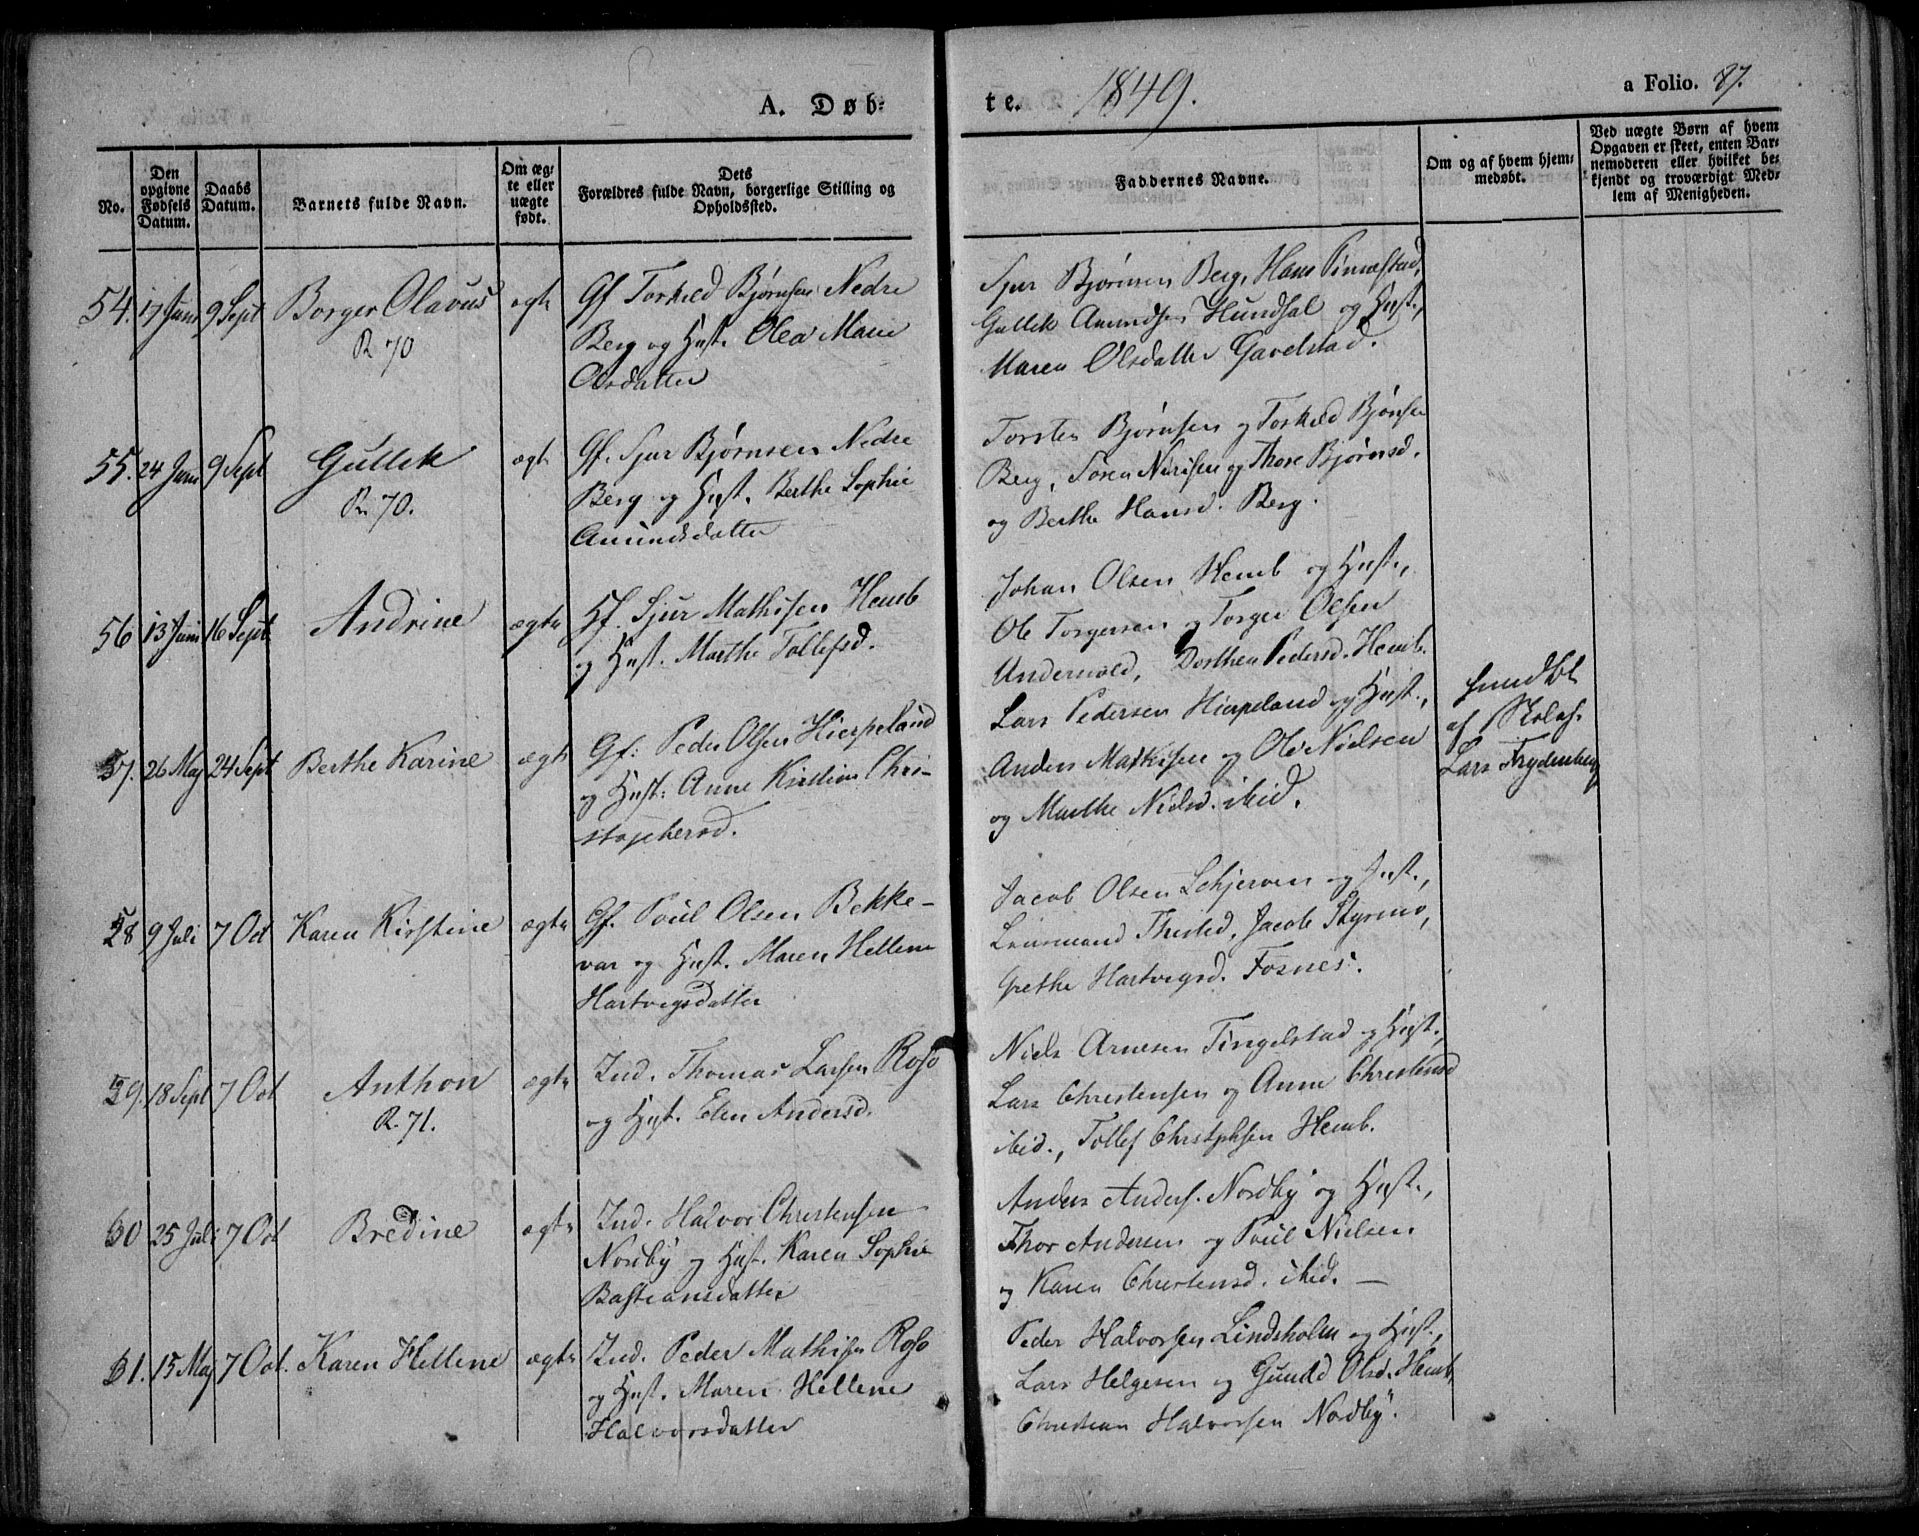 A. Døb-
te. 1849.
a Folio. 87.
No.
Den opgivne Fødsels Datum.
Daabs Datum.
Barnets fulde Navn.
Om ægte eller uægte født.
Dets
Forældres fulde Navn, borgerlige Stilling og
Opholdssted.
Faddernes Navne.
Om og af hvem hjem-
medøbt.
Ved uægte Børn af hvem
Opgaven er skeet, enten Bar-
nemoderen eller hvilket be-
kjendt og troværdigt Med-
lem af Menigheden.
54. 17 Juni 9 Sept Borger Olavus ægte
R 70
Gf Torkild Bjørnsen Nedre
Berg og Hust. Olea Marie
Olsdatter
Sjur Bjørnsen Berg, Hans
Gullik Amundsen Hundsal og Hust.,
Maren Olsdatter Gavelstad.
55. 24 Juni 9 Sept Gullik ægte
R. 70.
Gf. Sjur Bjørnsen Nedre
Berg og Hust. Berthe Sophie
Amundsdatter
Torsten Bjørnsen og Torkild Bjørnsen
Berg, Søren og Thore Bjørnsd.
og Berthe Hansd. Berg.
56 13 Juni 16 Sept Andrine ægte
Hf. Sjur Mathisen Hemb
og Hust. Marthe Tollefsd.
Johan Olsen Hemb og Hust.,
Ole Torgersen og Torger Olsen
Undersvold, Dorthea Pedersd. Hemb.
57. 26 May 24 Sept Berthe Karine ægte
Gf: Peder Olsen Hierpeland
og Hust: Anne Kristine Chri-
stophersd.
Lars Pedersen Hierpeland og Hust.,
Anders Mathisen og Ole Nielsen
og Marthe Nielsd. ibid.
af Skolah.
Lars Frydenberg
58 9 Juli 7 Oct Karen Kirstine ægte
Gf. Poul Olsen Bekke-
var og Hust. Maren Hellene
Hartvigsdatter
Jacob Olsen Schjerven og Hust.,
Lensmand Thisted, Jacob Styrmo,
Grethe Hartvigsd. Fosnes.
59. 18 Sept 7 Oct Anthon ægte
R. 71.
Ind. Thomas Larsen Roso
og Hust. Elen Andersd.
Niels Arnesen Tingelstad og Hust.,
Lars Christensen og Anne Christensd
ibid., Tollef Christophsen Hemb.
60 25 Juli 7 Oct Bredine ægte
Ind. Halvor Christensen
Nordby og Hust. Karen Sophie
Bastiansdatter
Anders Anders. Nordby og Hust.,
Thor Andersen og Poul Nielsen
og Karen Christensd. ibid. —
61. 15 May 7 Oct. Karen Hellene ægte
Ind. Peder Mathisen Roso
og Hust. Maren Hellene
Halvorsdatter
Peder Halvorsen Lindsholm og Hust.,
Lars Helgesen og Gunild Olsd. Hemb,
Christian Halvorsen Nordby.